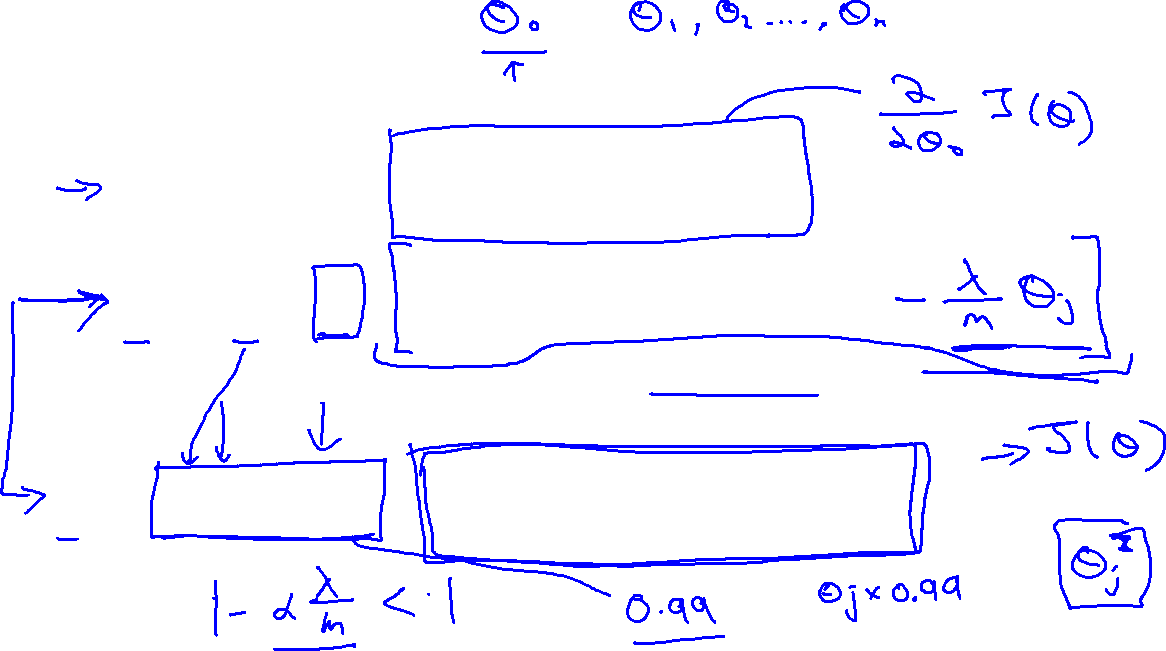 θ₀ θ₁, θ₂ ...., θₙ
∂/∂θ₀ J(θ)
- λ/m θⱼ
J(θ)
θⱼ²
1 - α λ/m < 1
0.99
θⱼ × 0.99